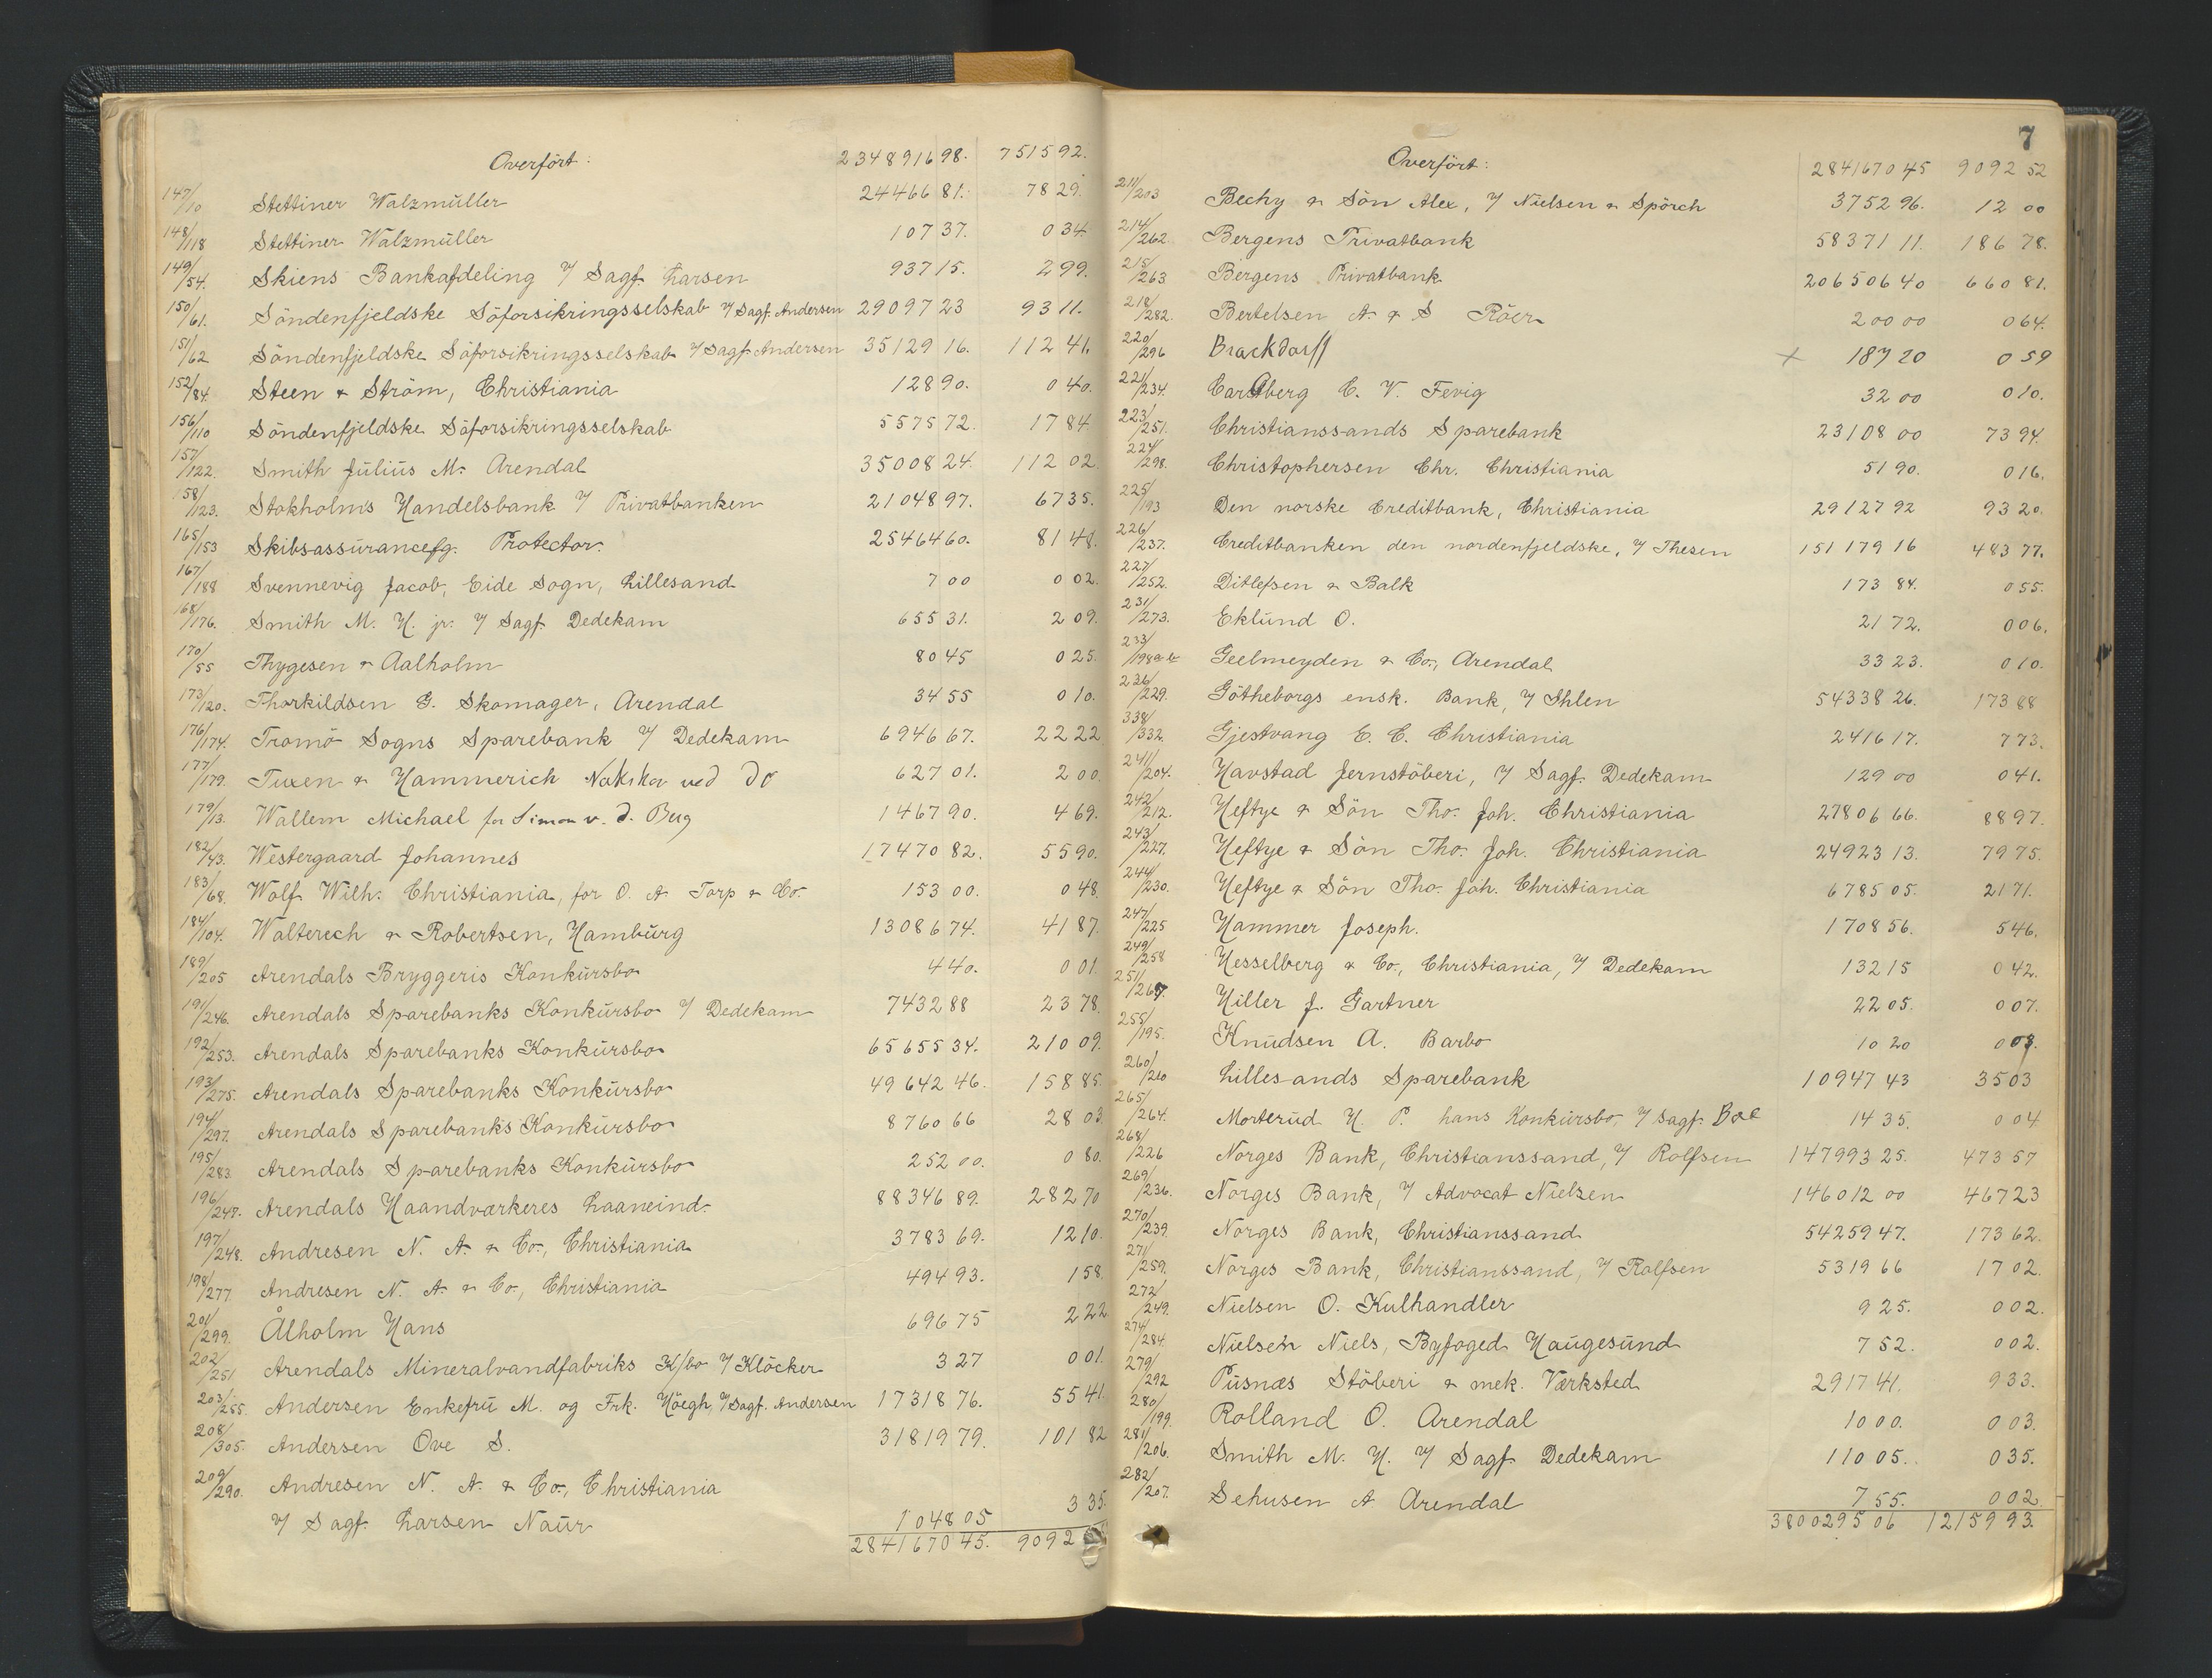 Overført: 2348916 98. 7515 92.
147/10 Stettiner Walzmüller 24466 81. 78 29.
148/118 Stettiner Walzmüller 107 37. 0 34.
149/54. Skiens Bankafdeling v/ Sagf. Larsen 937 15. 2 99.
150/61. Söndenfjeldske Söforsikringsselskab v/ Sagf. Andersen 29097 23 93 11.
151/62 Söndenfjeldske Söforsikringsselskab v/ Sagf. Andersen 35129 16. 112 41.
152/84. Steen & Ström, Christiania 128 90. 0 40.
156/110 Söndenfjeldske Söforsikringsselskab 5575 72. 17 84.
157/122. Smith Julius M. Arendal 35008 24. 112 02.
158/123. Stokholms Handelsbank v/ Privatbanken 21048 97. 67 35.
165/153 Skibsassurancefg. Protector. 25464 60. 81 48.
167/188 Svennevig Jacob, Eide Sogn, Lillesand 7 00 0 02.
168/176. Smith M. H. jr. v/ Sagf. Dedekam 655 31. 2 09.
170/55 Thygesen & Aalholm 80 45 0 25.
173/120. Thorkildsen G. Skomager, Arendal 34 55 0 10.
176/174. Tromö Sogns Sparebank v/ Dedekam 6946 67. 22 22
177/179. Tuxen & Hammerich Nakskov ved do 627 01. 2 00.
179/13. Wallem Michael for Simon v. d. Berg 1467 90. 4 69.
182/43. Westergaard Johannes 17470 82. 55 90.
183/68. Wolf Wilh. Christiania, for O. A. Torp & Co. 153 00. 0 48.
184/104. Walterech & Robertsen, Hamburg 13086 74. 41 87.
189/205 Arendals Bryggeris Konkursbo 4 40. 0 01.
191/246. Arendals Sparebanks Konkursbo v/ Dedekam 7432 88 23 78.
192/253. Arendals Sparebanks Konkursbo 65655 34. 210 09.
193/275. Arendals Sparebanks Konkursbo 49642 46. 158 85.
194/297. Arendals Sparebanks Konkursbo 8760 66 28 03.
195/283. Arendals Sparebanks Konkursbo 252 00. 0 80.
196/247. Arendals Haandværkeres Laaneind. 88346 89. 282 70
197/248. Andresen N. A. & Co., Christiania 3783 69. 12 10.
198/277. Andresen N. A. & Co., Christiania 494 93. 1 58.
201/299. Ålholm Hans 696 75 2 22
202/251 Arendals Mineralvandfabriks K/bo v/ Klöcker 3 27 0 01.
203/255. Andersen Enkefru M. og Frk. Höegh, v/ Sagf. Andersen 17318 76. 55 41.
208/305. Andersen Ove S. 31819 79. 101 82
209/290. Andresen N. A. & Co., Christiania
v/ Sagf. Larsen Naur 1048 05 3 35.
2841670 45. 9092
7
Overført: 2841670 45 9092 52
211/203 Bechy & Sön Alex, v/ Nielsen & Spörch 3752 96. 12 00
214/262. Bergens Privatbank 58371 11. 186 78.
215/263 Bergens Privatbank 206506 40 660 81.
218/282. Bertelsen A. & S Röer 200 00 0 64.
220/296 Brackdorff × 187 20 0 59
221/234. Carlberg C. V. Fevig 32 00 0 10.
223/251. Christianssands Sparebank 23108 00 73 94.
224/298. Christophersen Chr. Christiania 51 90. 0 16.
225/193 Den norske Creditbank, Christiania 29127 92 93 20.
226/237. Creditbanken den nordenfjeldske, v/ Thesen 151179 16 483 77.
227/252. Ditlefsen & Balk 173 84. 0 55.
231/273. Eklund O. 21 72. 0 06.
233/198a-b Geelmeyden & Co., Arendal 33 23. 0 10.
236/229. Götheborgs ensk. Bank, v/ Ihlen 54338 26. 173 88
338/332. Gjestvang E. C. Christiania 2416 17. 7 73.
241/204. Havstad Jernstöberi, v/ Sagf. Dedekam 129 00 0 41.
242/212. Heftye & Sön Tho. Joh. Christiania 27806 66. 88 97.
243/227. Heftye & Sön Tho. Joh. Christiania 24923 13. 79 75.
244/230. Heftye & Sön Tho. Joh. Christiania 6785 05. 21 71.
247/225 Hammer Joseph. 1708 56. 5 46.
249/258 Hesselberg & Co., Christiania, v/ Dedekam 132 15 0 42.
251/267. Hiller J. Gartner 22 05. 0 07.
255/195. Knudsen A. Barbo 10 20 0 03.
260/260 Lillesands Sparebank 10947 43 35 03
265/264. Morterud H. P. hans Konkursbo, v/ Sagf. Boe 14 35. 0 04
268/226 Norges Bank, Christianssand, v/ Rolfsen 147993 25. 473 57
269/236. Norges Bank, v/ Advocat Nielsen 146012 00 467 23
270/239. Norges Bank, Christianssand 54259 47. 173 62.
271/259. Norges Bank, Christianssand, v/ Rolfsen 5319 66 17 02.
272/249. Nielsen O. Kulhandler 9 25. 0 02.
274/284. Nielsen Niels, Byfoged Haugesund 7 52. 0 02.
279/292 Pusnæs Stöberi & mek. Værksted 2917 41. 9 33.
280/199. Rolland O. Arendal 10 00. 0 03.
281/206. Smith M. H. v/ Sagf. Dedekam 110 05. 0 35.
282/207. Sehusen A Arendal 7 55. 0 02.
3800295 06 12159 93.